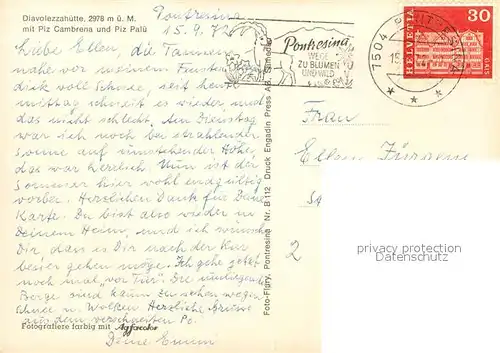 Diavolezzahütte, 2978 m ü. M.
mit Piz Cambrena und Piz Palü
Pontresina
15.9.72
Liebe Ellen, die Tannen
nahe vor meinem Fenster
dick voll Schnee, seit heute
mittag schneit es wieder und
das nicht schlecht. Am Dienstag
war ich noch bei strahlender
Sonne auf umstehender Höhe,
das war herrlich. Nun ist der
Sommer hier wohl endgültig
vorbei. Herzlichen Dank für Deine
Karte. Du bist also wieder in
Deinem Heim, und ich wünsche
Dir, dass es Dir nach der Kur
besser gehen möge. Ich gehe jetzt
noch mal "vor Tür". Die umliegenden
Berge sind kaum zu sehen wegen
Schnee u. Wolken. Herzliche Grüsse
aus dem verschneiten Po.
Deine
Fotografiere farbig mit Agfacolor
Foto-Flury, Pontresina Nr. B 112 Druck Engadin Press AG, Samedan
Pontresina
WEGE
ZU BLUMEN
UND WILD
7504 PONTRESINA
15.
HELVETIA
30
GAIS
Frau
Ellen
2
copyright protected
personal data